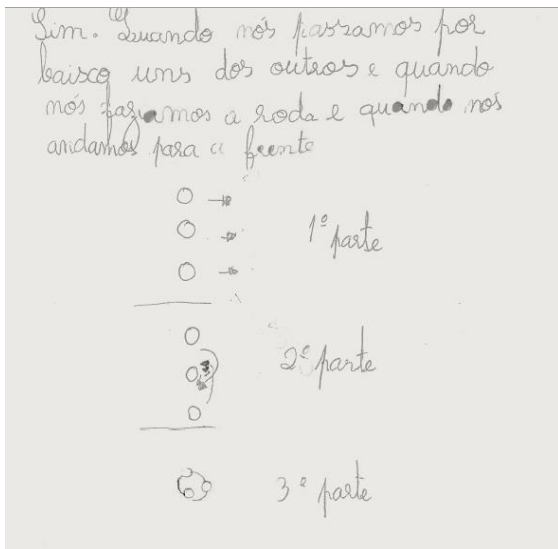 Sim. Quando nós passamos por
baisco uns dos outros e quando
nós fazíamos a roda e quando nós
andamos para a frente
1º parte
2º parte
3º parte